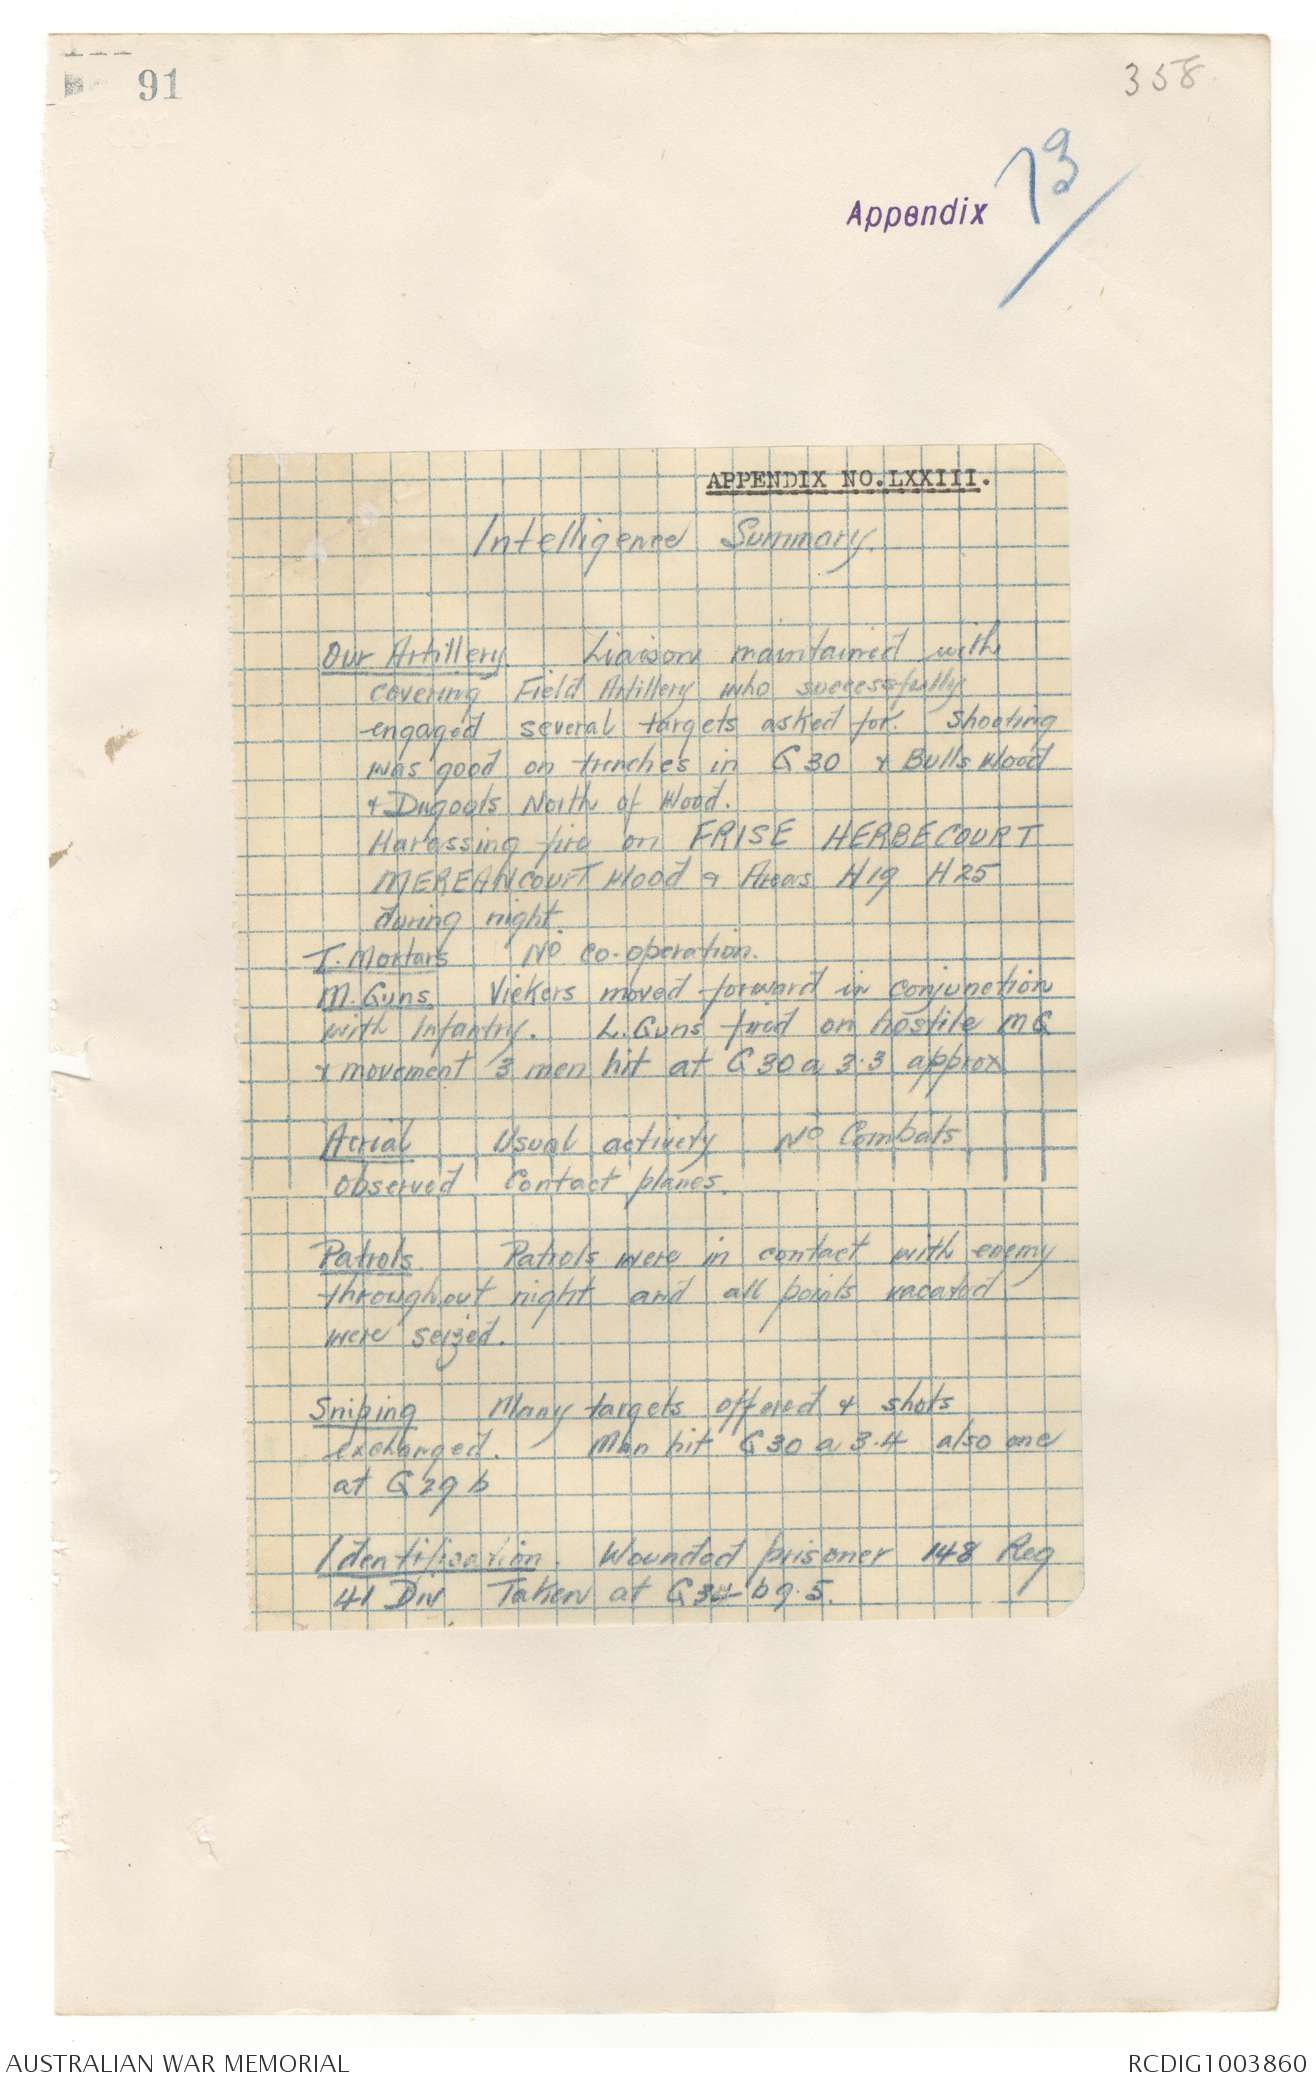 91
358
Appendix 73
APPENDIX NO. LXXIII.
Intelligence Summary.
Our Artillery. Liaison maintained with
covering Field Artillery who successfully
engaged several targets asked for. Shooting
was good on trenches in G 30 & Bulls Wood
& Dugouts North of Wood.
Harassing fire on FRISE HERBECOURT
MEREAUCOURT Wood & Areas H19 H25
during night.
T. Mortars No co-operation.
M. Guns. Vickers moved forward in conjunction
with Infantry. L. Guns fired on hostile MG
& movement 3 men hit at G 30 a 3.3 approx
Aerial Usual activety No Combats
observed Contact planes.
Patrols. Patrols were in contact with enemy
throughout night and all points vacated
were seized.
Sniping Many targets offered & shots
exchanged. Man hit G 30 a 3.4 also one
at G 29 b
Identification. Wounded prisoner 148 Reg
41 Div Taken at b 9.5.
AUSTRALIAN WAR MEMORIAL
RCDIG1003860